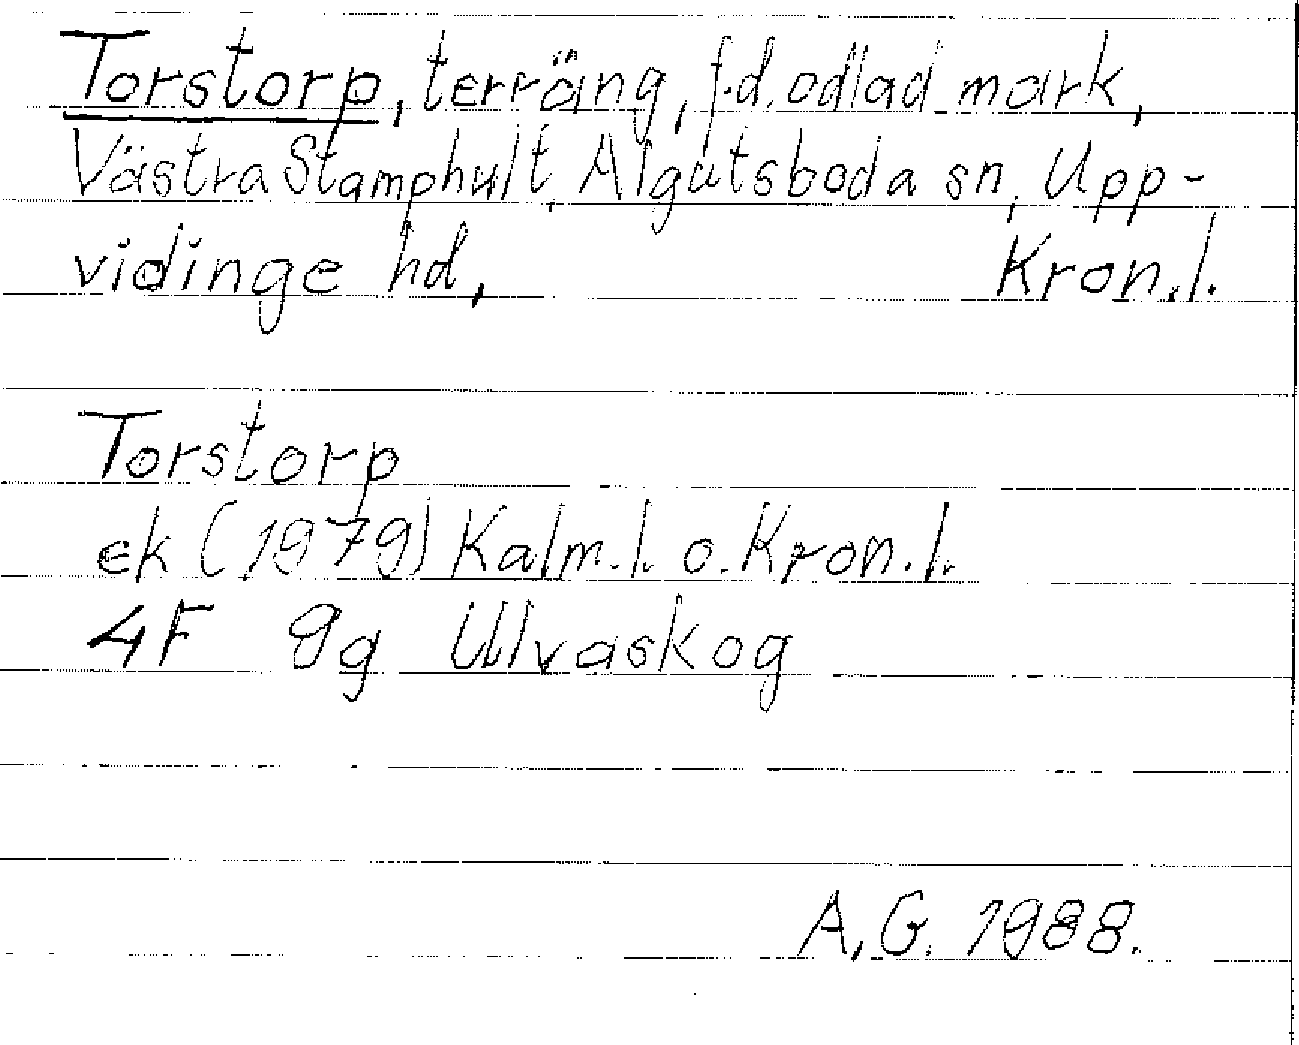 Torstorp, terräng, f.d. odlad mark,
Västra Stamphult, Algutsboda sn, Upp-
vidinge hd, Kron.l.
Torstorp
ek (1979) Kalm.l. o. Kron.l.
4F 9g Ulvaskog
A.G. 1988.